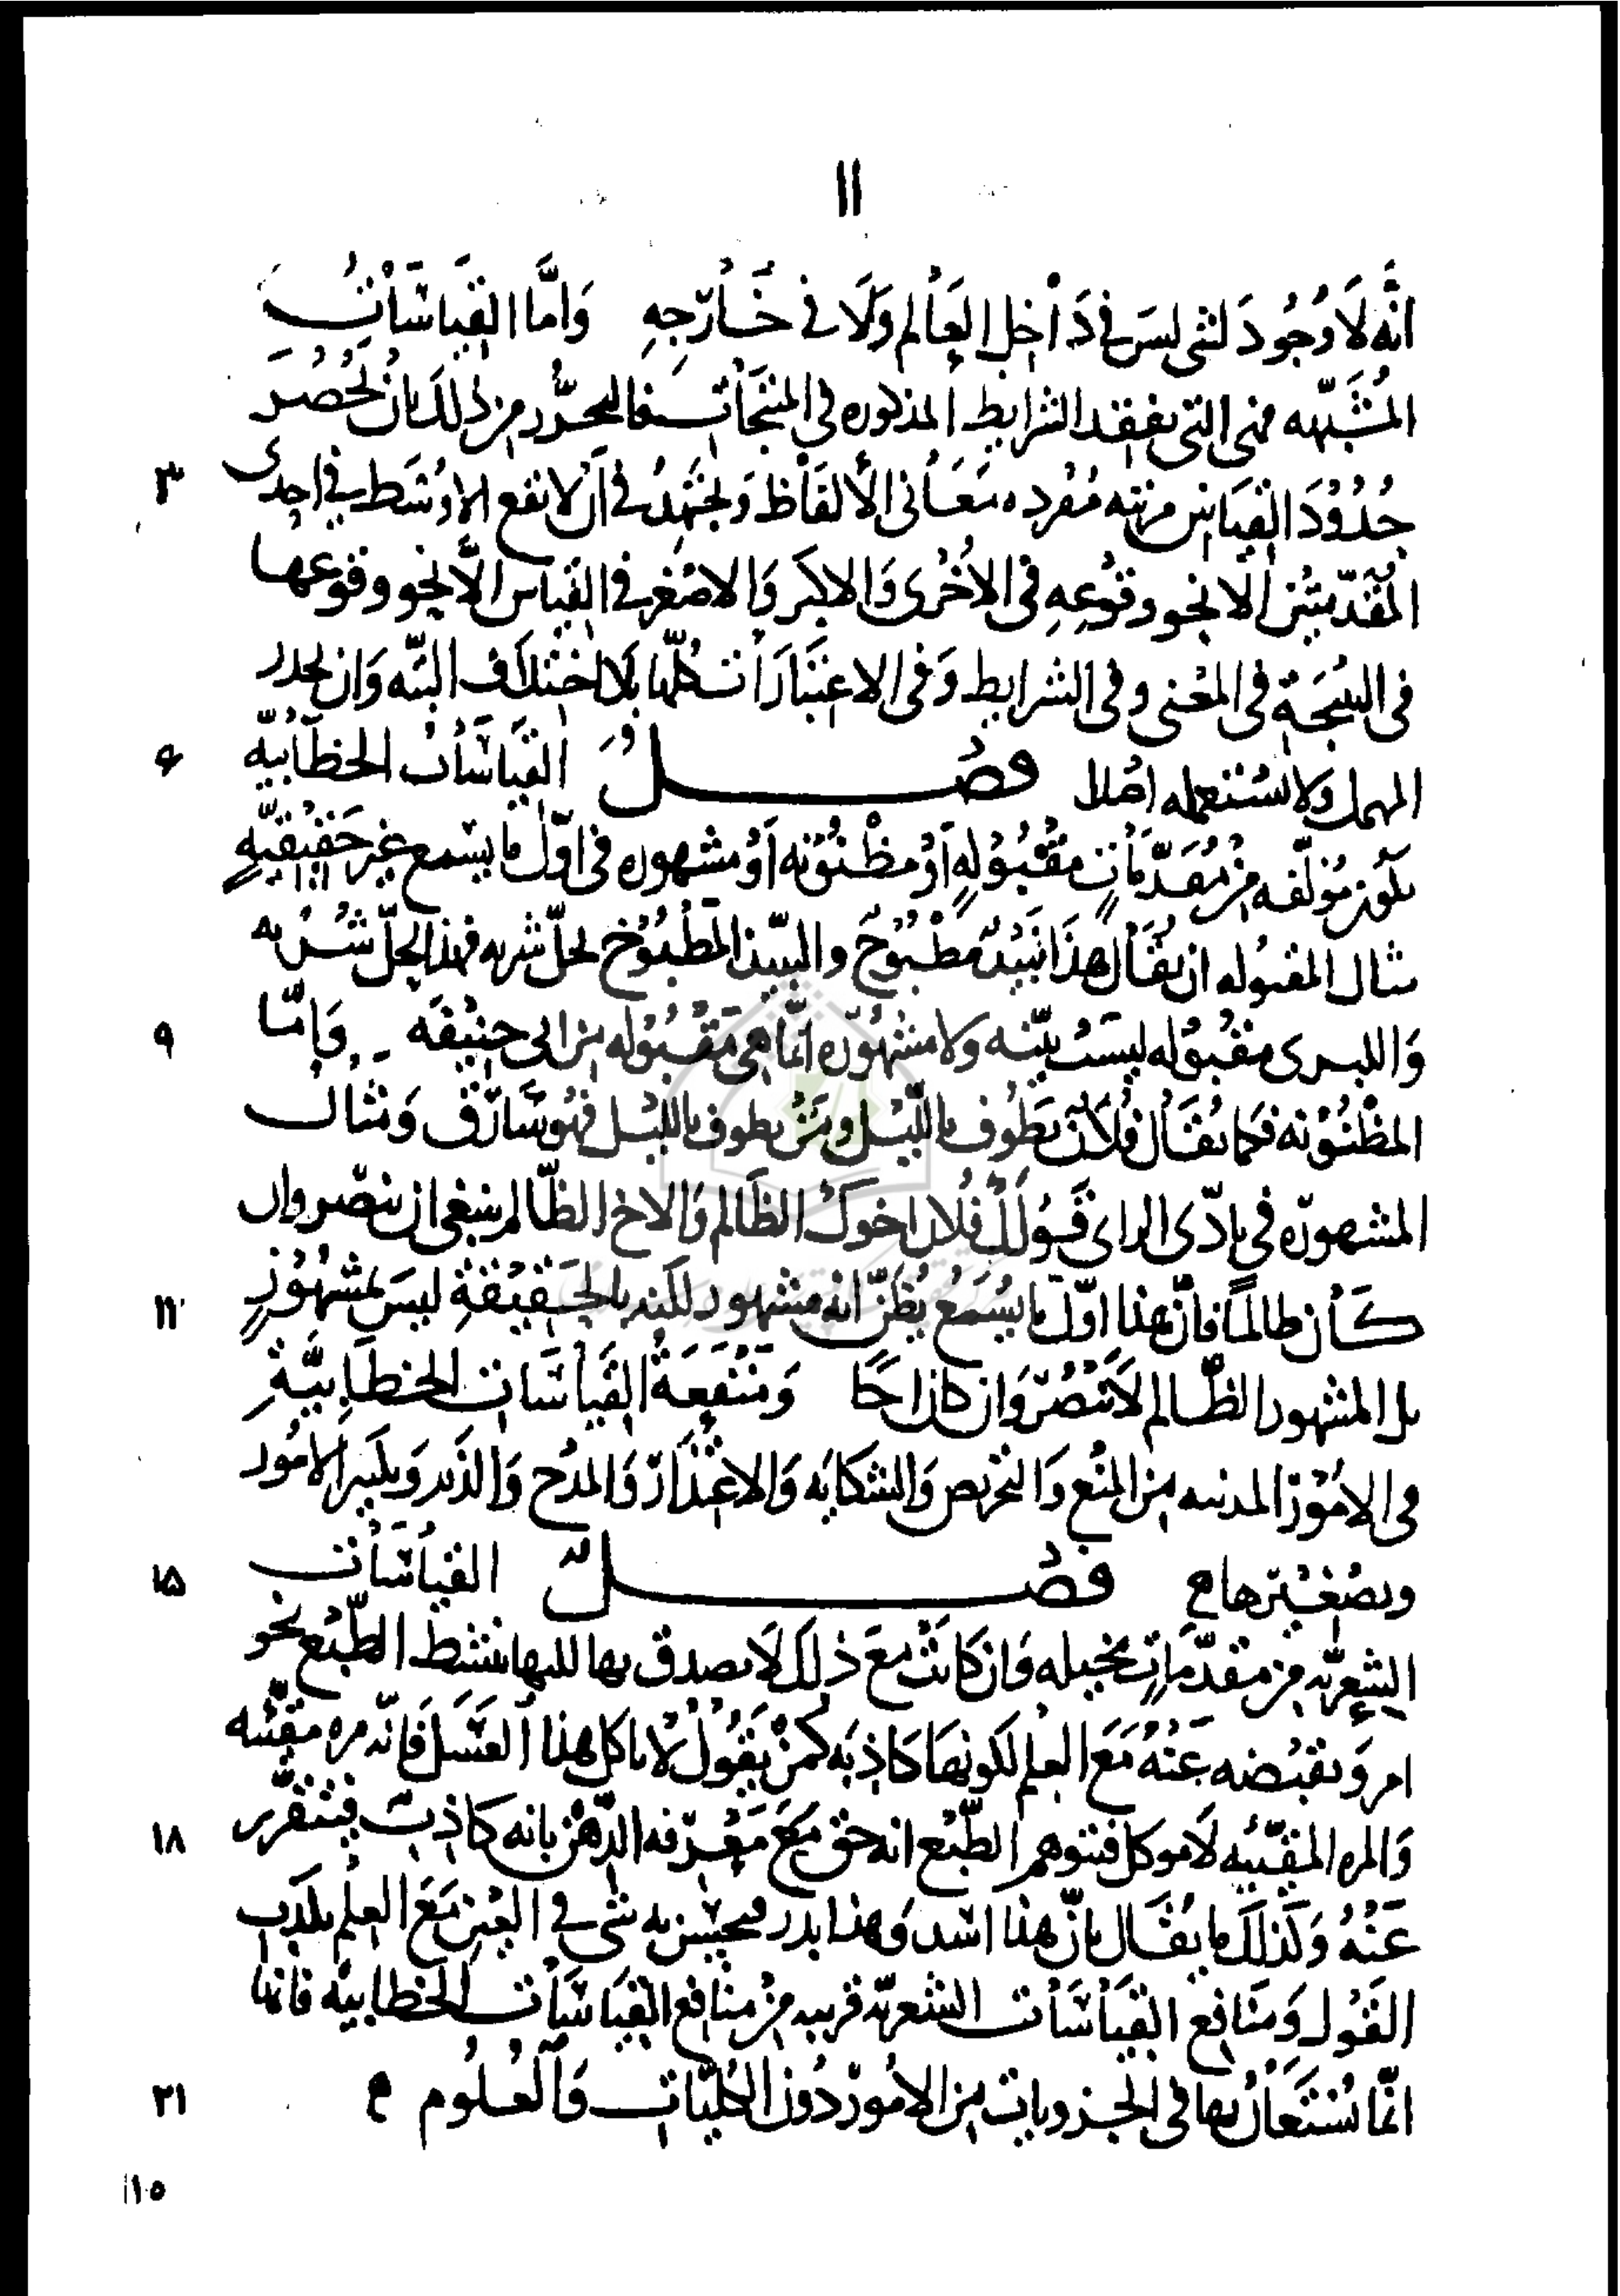 ١١
انّه لَا وُجُودَ لشى ليسَ فى دَاخِل العَالم وَلَا فى خَارّجِهِ وَامَّا القِيَاسَاتُ
المُشَبّهه فهى التى تفقد الشرايط المذكوره فى المنتجَات فالتحرُّز من ذلك بان تُحصُر
٣ حُدُوُدَ القيَاس مرتبه مُفرده مَعَانى الألفَاظ وَتجتَهِدُ فى اَن لا تقع الاوُسَط فى احِدى
المُقدّمتَين الا نحو وقُوعِهِ فى الاُخرى وَالاكبر وَالاصْغر فى القيَاس الّا نحو وقوعهَا
فى النتيجَةِ فى المعْنى وفى الشرايط وَفى الاعتبَارَات كلّها بلا اختلاف البتّه وَان تحذر
٦ المهمل ولا تستعمله اصْلا فصْـــلُ القيَاسَاتُ الخطَابيّه
تكون مؤلّفه من مُقدّمَاتٍ مقبُولهٍ اَوْ مظْنُوْنه اَوْ مشهوره فى اوّل ما يسمع غير حَقيْقيّهٍ
مثال المقبُوله ان يُقَال هذَا نَبيْذٌ مَطْبُوْخٌ والنبيذ المَطْبُوُخ يحلّ شربه فهذا يحلّ شُرْبُه
٩ وَالكبرى مقبُوله ليسَتْ بيّنه ولا مشهُوره انّما هى مَقْبُوْله من ابى حنِيْفَه وَامّا
المظْنُوْنه فكما يُقَال فُلَانٌ يَطُوُف بالليْل ومَنْ يطوف بالليْل فهُو سَارّق وَمثَال
المشهورَه فى بادّى الراى قَوُلكَ فلان اخوكَ الظَالم وَالاخ الظّالم ينبغى ان ينصّر وان
١٢ كَان ظالمًا فانّ هذا اوّل ما يُسْمَع يُظَنّ انه مشهور لكنه بالحَقيْقةِ ليسَ بمشهُوْرٍ
بل المشهور الظّالم لَا يَنْصُرّ وَان كان اخًا وَمَنْفعَةُ القيَاسَات الخطَابيَّةِ
فى الاموْر المدنيه من المنْع وَالتحريص وَالشكايَه وَالاعتذارّ وَالمدْح وَالذم وَتكبير الامُور
١٥ وتصْغيْرها فصْـــلٌ القيَاسَات
الشعريّه من مقدّمَاتٍ مخيله وَان كانتْ معَ ذلكَ لَا يصدق بها لكنها تنشط الطّبْع نحو
امر وَتقبْضه عَنْهُ مَعَ العِلم لكونها كاذِبَه كمَنْ يَقُوُل لا تاكل هذا العَسَل فَانّه مره مقيّئه
١٨ وَالمره المقيّئه لَا توكل فيتوهم الطّبْع انه حق مَعَ مَعْرفه الذّهن بانه كاذبٌ فيتقزّر
عَنْهُ وَكذلكَ ما يُقَال بانّ هذا اسَد وَهذا بدر فيحسن به شى فى العين مَعَ العِلْم بكذب
القَول وَمنَافِع القيَاسَات الشعريّه قريبه من منَافِع القيَاسَات الخطابيّه فانها
٢١ انّما يُسْتعَانُ بها فى الجزويات من الامُورْ دُون الكُليّات وَالعُلُوم
١٠٥